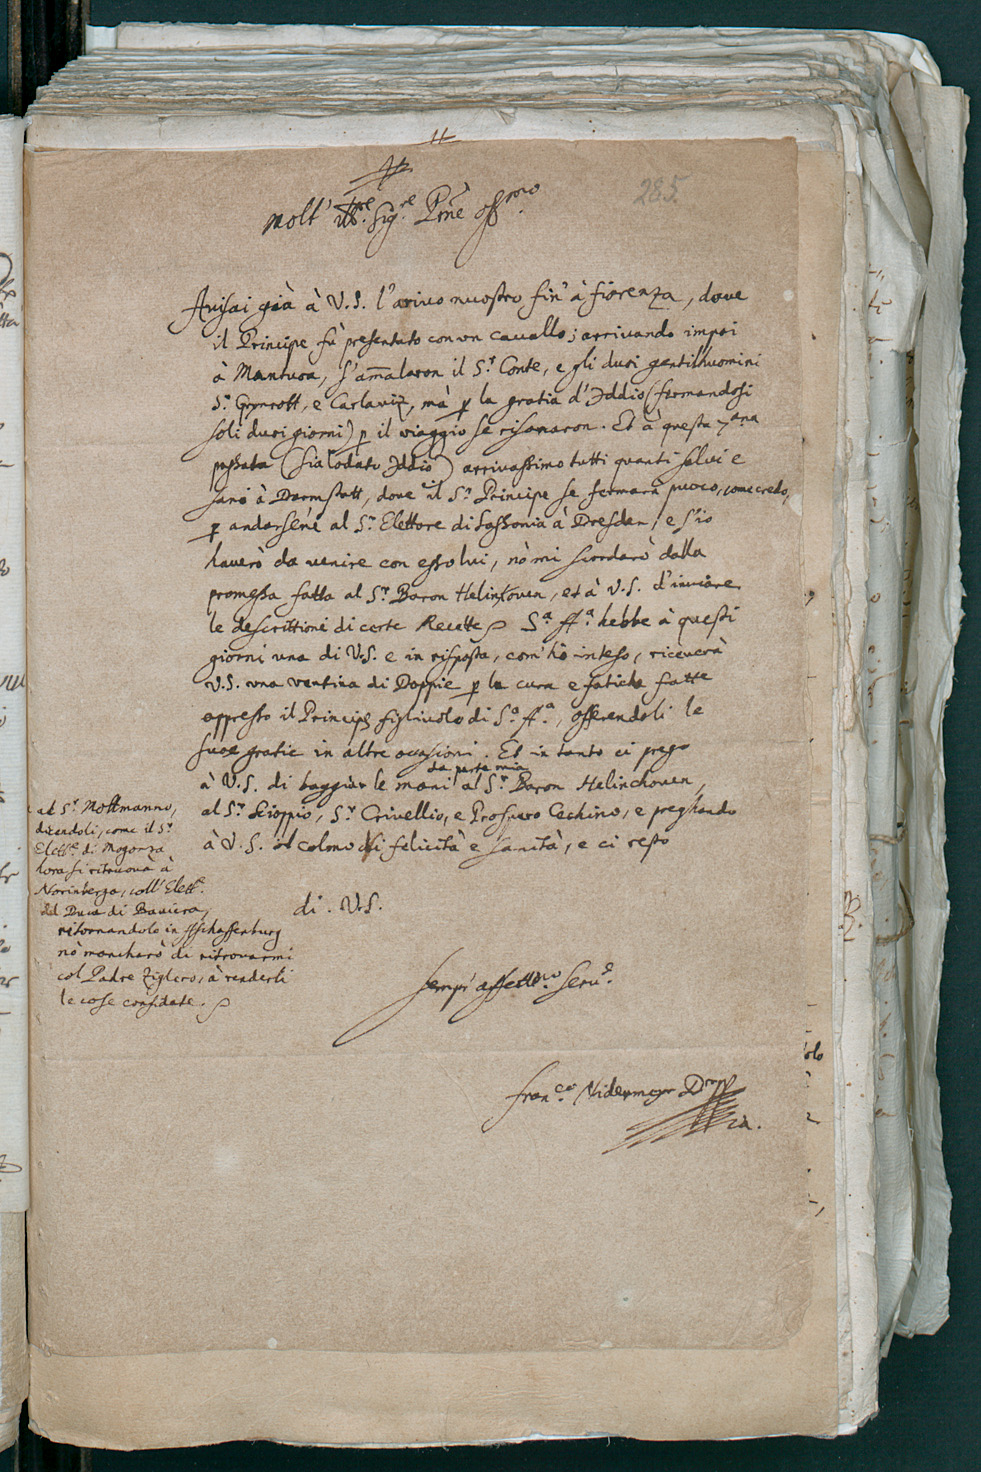 285.
Molt' Ill.re Sig.re P̃ne oss.mo
Auisai già à V.S. l'ariuo nuostro fin' à fiorenza, doue
il Principe fù presentato con vn cauallo; arriuando impoi
à Mantuoa, s'am̃alaron il S.r Conte, e gli duoi gentilhuomini
S.r Gynrott, e Carlawiz, mà p la gratia d'Iddio (fermandosi
soli duoi giorni) p il viaggio se risanaron. Et à questa 7ana
passata (sia lodato Iddio) arriuassimo tutti quanti salui e
sani à Darmstatt, doue il S.r Principe se fermarà puoco, come credo,
p andarsene al S.r Elettore di Sassonia à Dresden, e s'io
hauerò da venire con esso lui, nō mi scordarò dalla
promessa fatta al S.r Baron Helinchouen, et à V.S. d'inuiare
le descrittioni di certe Recette S.a A.a hebbe à questi
giorni vna di V.S. e in risposta, com' hò inteso, riceuerà
V.S. vna ventina di Doppie p la cura e faticha fatte
appresso il Principe figliuolo di S.a A.a, offerendoli le
suoe gratie in altre occasioni. Et in tanto ci prego
à V.S. di baggiar le mani da parte mia al S.r Baron Helinchouen,
al S.r Scioppio, S.r Criuellio, e Prospero Cechino, e preghando
à V.S. ol colmo di felicità e sanità, e ci resto
al S.r Mottmanno,
dicendoli, come il S.r
Elett.e di Mogonza
hora si ritruoua à
Norinberga, coll' Elett.e
del Duca di Bauiera,
ritornandolo in Aschaffenburg
nō mancharò di ritrouarmi
col Padre Ziglero, à renderli
le cose confidate.
di. V.S.
sempr' affett.mo seru.e
Fran.co Nidermayr D.r